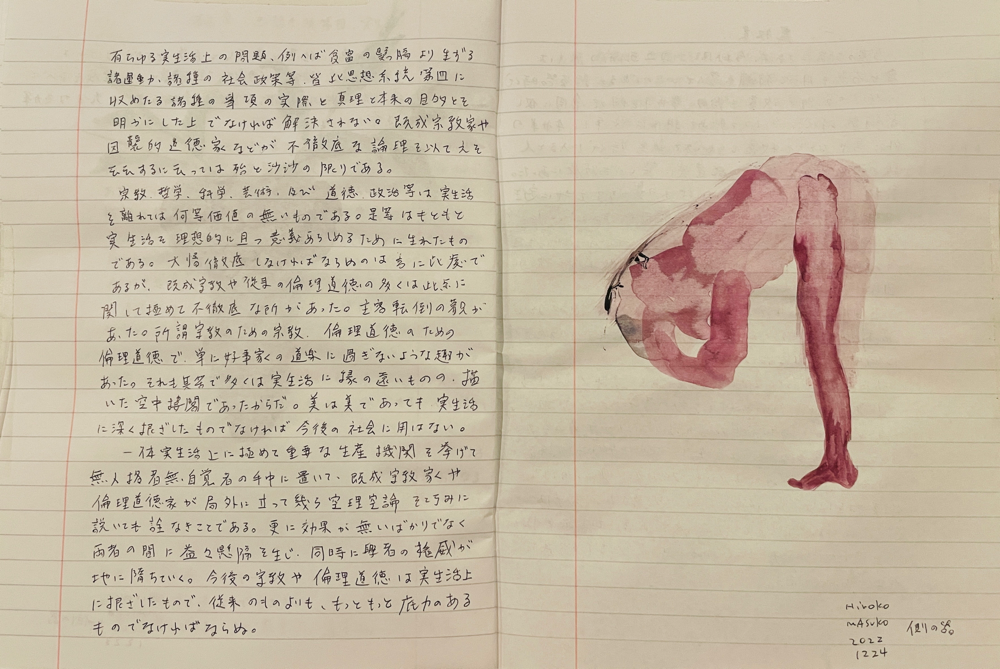 有らゆる実生活上の問題、例へば貧富の懸隔より生ずる
諸運動、諸種の社会政策等、皆此思想系統第四に
収めたる諸種の事項の実際と真理と本来の目的とを
明かにした上でなければ解決されない。既成宗教家や
因襲的道徳家などが不徹底な論理を以て之を
云云するに至っては殆と沙汰の限りである。
宗教、哲学、科学、芸術、及び道徳、政治等は実生活
を離れては何等価値の無いものである。是等はもともと
実生活を理想的に且つ意義あらしめるために生れたもの
である。大悟徹底しなければならぬのは実に此处で
あるが、既成宗教や従来の倫理道徳の多くは此点に
関して極めて不徹底な所があった。主客転倒の観が
あった。所謂宗教のための宗教、倫理道徳のための
倫理道徳で、単に好事家の道楽に過ぎないような趣が
あった。それも其筈で多くは実生活に縁の遠いものの、描
いた空中楼閣であったからだ。美は美であっても実生活
に深く根ざしたものでなければ今後の社会に用はない。
一体実生活上に極めて重要な生産機関を挙げて
無人格者無自覚者の手中に置いて、既成宗教家や
倫理道徳家が局外に立って幾ら空理空論を巧みに
説いても詮なきことである。更に効果が無いばかりでなく
両者の間に益々懸隔を生じ、同時に両者の権威が
地に墮ちていく。今後の宗教や倫理道徳は実生活上
に根ざしたもので、従来のものよりも、もっともっと底力のある
ものでなければならぬ。
Hiroko
mAsuko
2022
1224